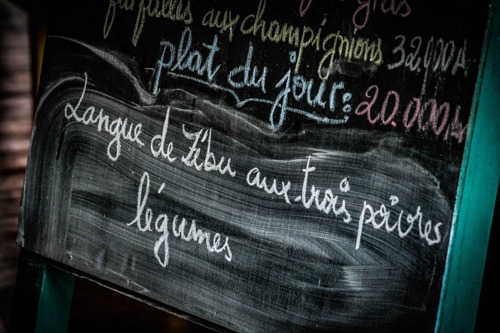 gras
farfalles aux champignons 32.000A
plat du jour: 20.000
Langue de Zébu aux trois poivres
légumes